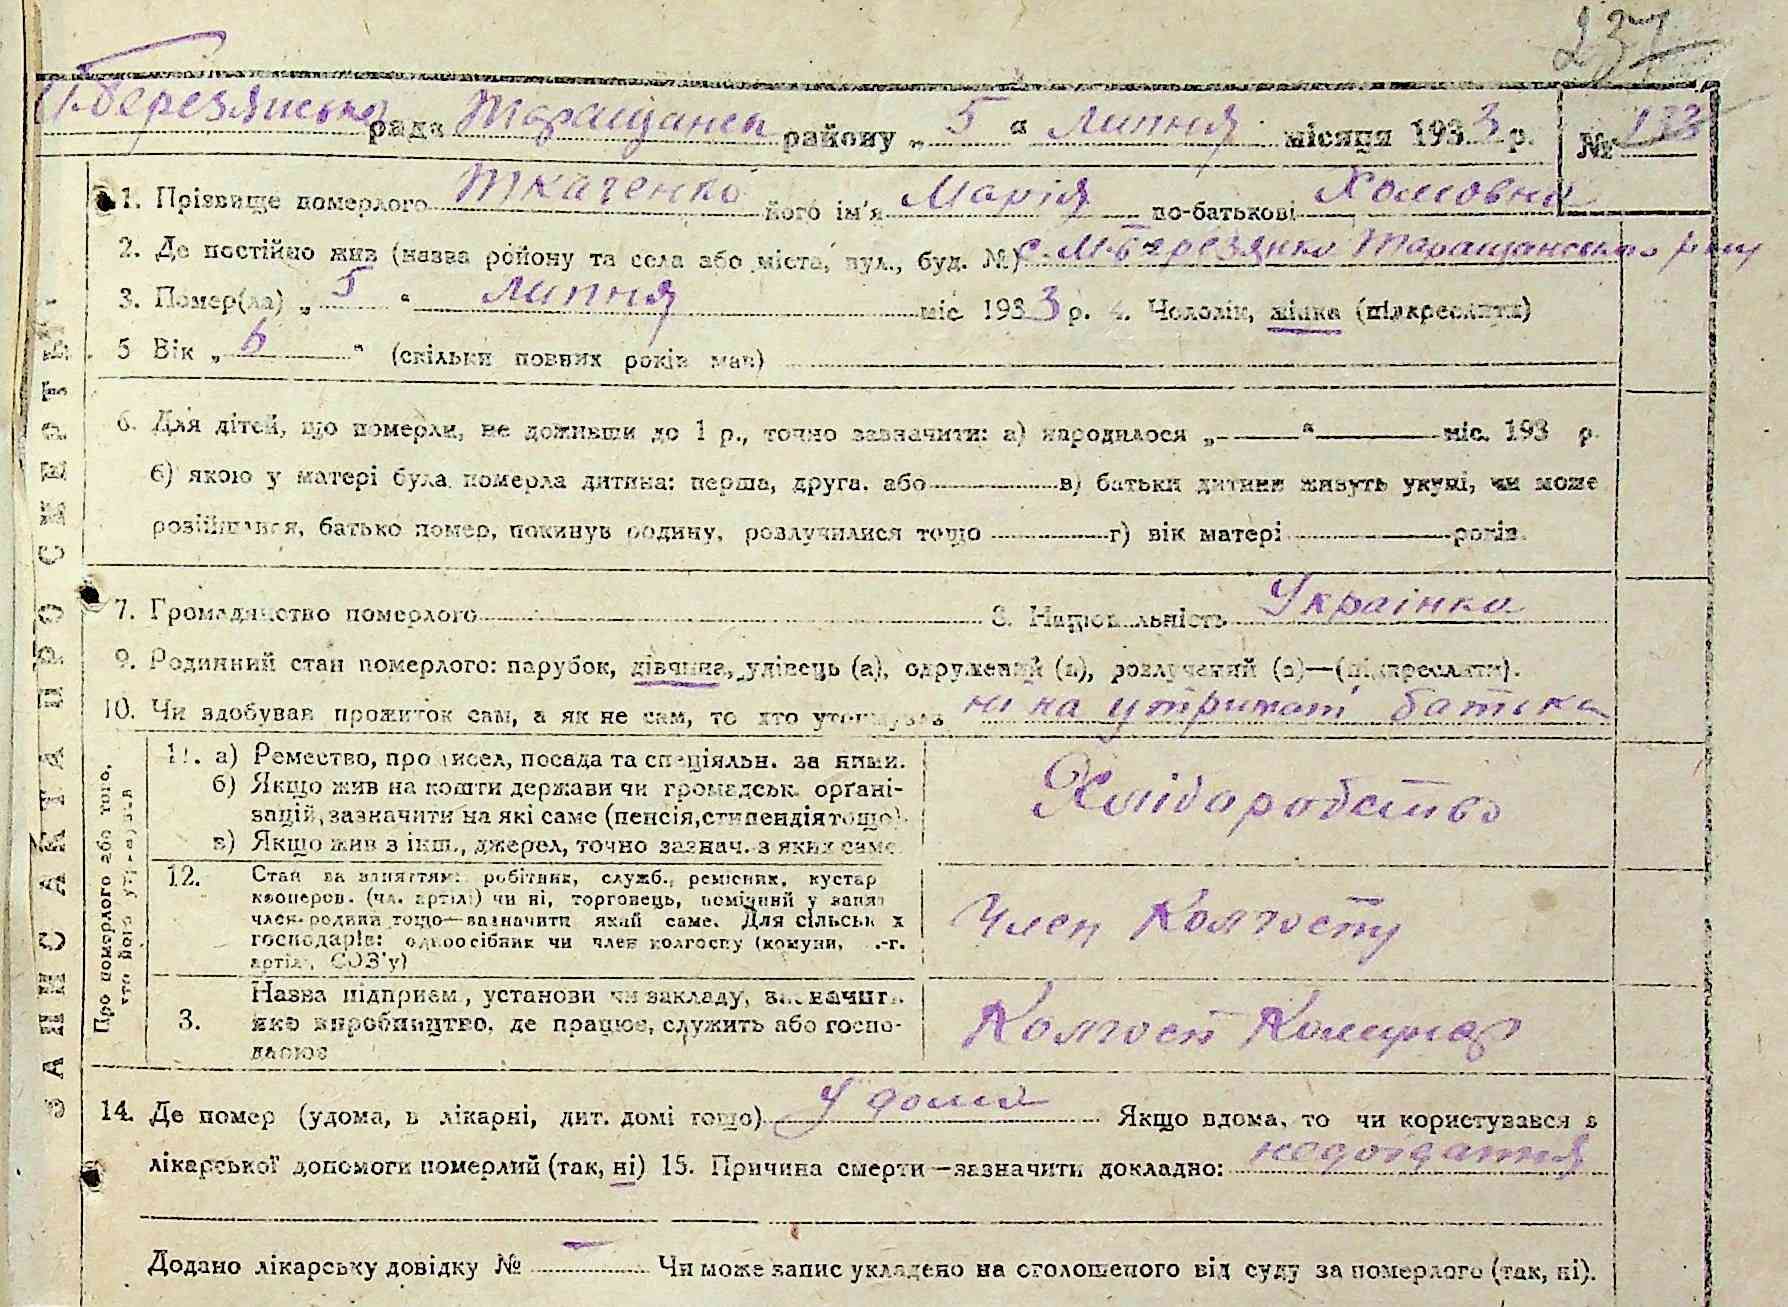 237
М.березянська рада Таращанськ району „ 5 “ Липня місяця 1933 р. № 133
1. Прізвище померлого Ткаченко його ім'я Марія по-батькові Хомовна
2. Де постійно жив (назва району та села або міста, вул., буд. №) с. М-Березянка Таращанського р-ну
3. Помер(ла) „ 5 “ Липня міс 1933 р. 4. Чоловік, жінка (підкреслити)
5 Вік „ 6 “ (скільки повних років мав)
6. Для дітей, що померли, не доживши до 1 р., точно зазначити: а) народилося „ “ міс. 193 р.
б) якою у матері була померла дитина: перша, друга, або в) батьки дитини живуть укупі, чи може
розійшлися, батько помер, покинув родину, розлучилися тощо г) вік матері років.
7. Громадянство померлого 8. Національність Українка
9. Родинний стан померлого: парубок, дівчина, удівець (а), одружений (а), розлучений (а)—(підкреслити).
10. Чи здобував прожиток сам, а як не сам, то хто утримував ні на утриман батька
ЗАПИС АКТА ПРО СМЕРТЬ
Про померлого або того, хто його утримував
11. а) Ремество, промисел, посада та спеціяльн. за ними.
б) Якщо жив на кошти держави чи громадськ. органі-
зацій, зазначити на які саме (пенсія, стипендія тощо).
в) Якщо жив з інш., джерел, точно зазнач. з яких саме
Хліборобство
12. Стан за заняттям: робітник, служб., ремісник, кустар
кооперов. (чл. артілі) чи ні, торговець, помічний у занят
член-родини тощо—зазначити який саме. Для сільськ х
господарів: одноосібник чи член колгоспу (комуни, .-г.
артілі, СОЗ'у)
Член Колгоспу
3. Назва підприєм., установи чи закладу, зазначити
яке виробництво, де працює, служить або госпо-
дарює
Колгосп Комунар
14. Де помер (удома, в лікарні, дит. домі тощо) У дома Якщо вдома, то чи користувався з
лікарської допомоги померлий (так, ні) 15. Причина смерти—зазначити докладно: недоїдання
Додано лікарську довідку № — Чи може запис укладено на оголошеного від суду за померлого (так, ні).